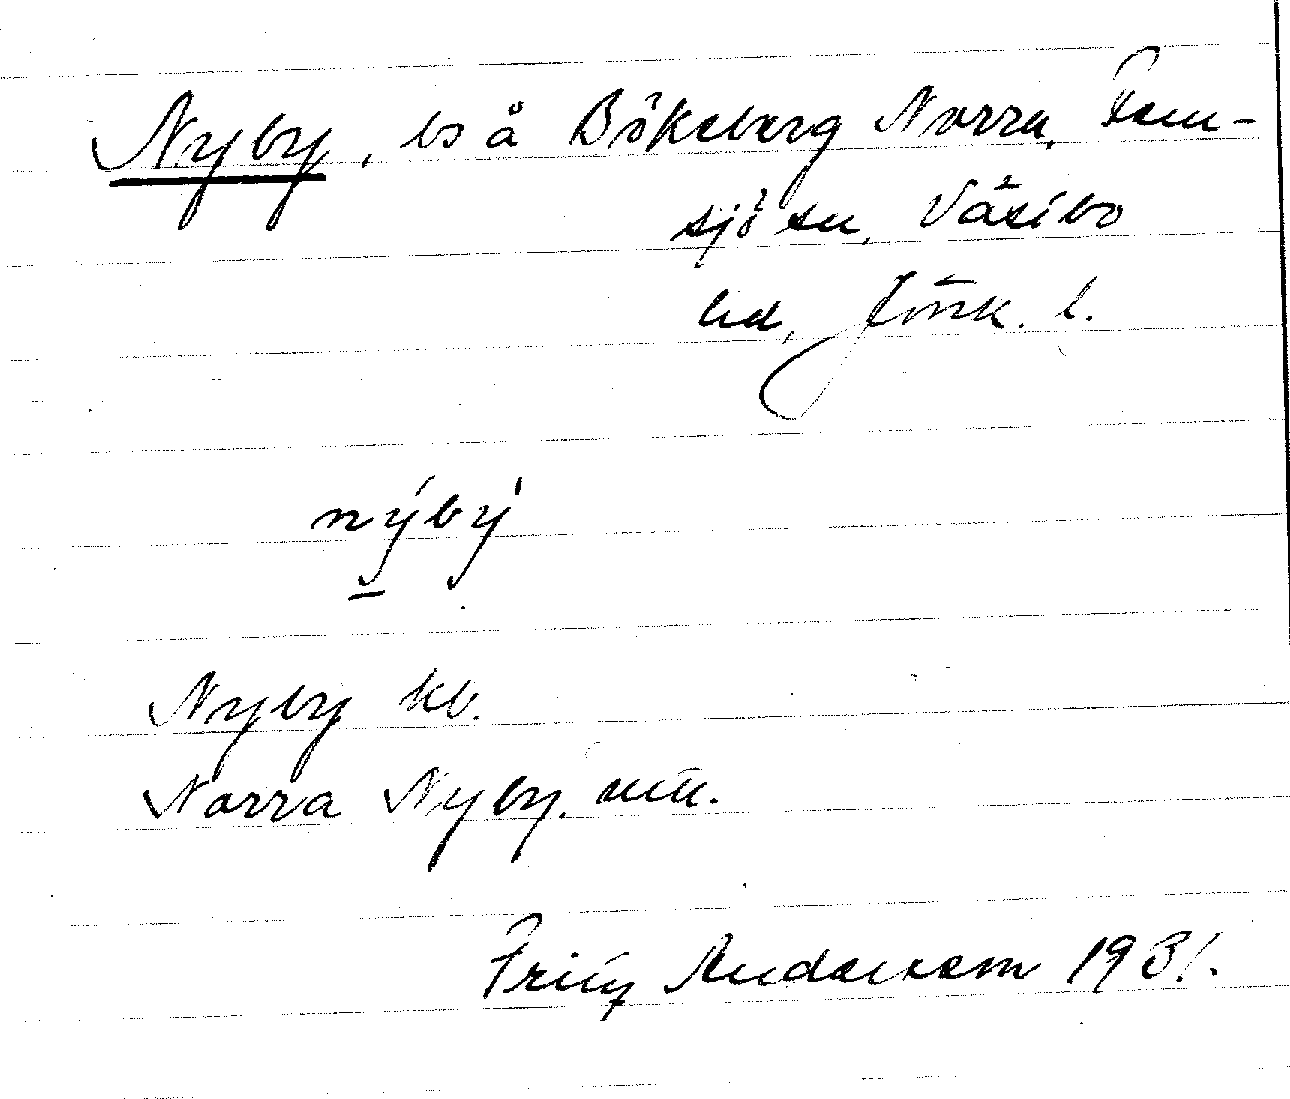 Nyby, bs å Bökeberg Norra, Fem-
sjö sn, Västbo
hd, Jönk. l.
nýbý
Nyby kb.
Norra Nyby. mtl.
Fritz Andersson 1931.